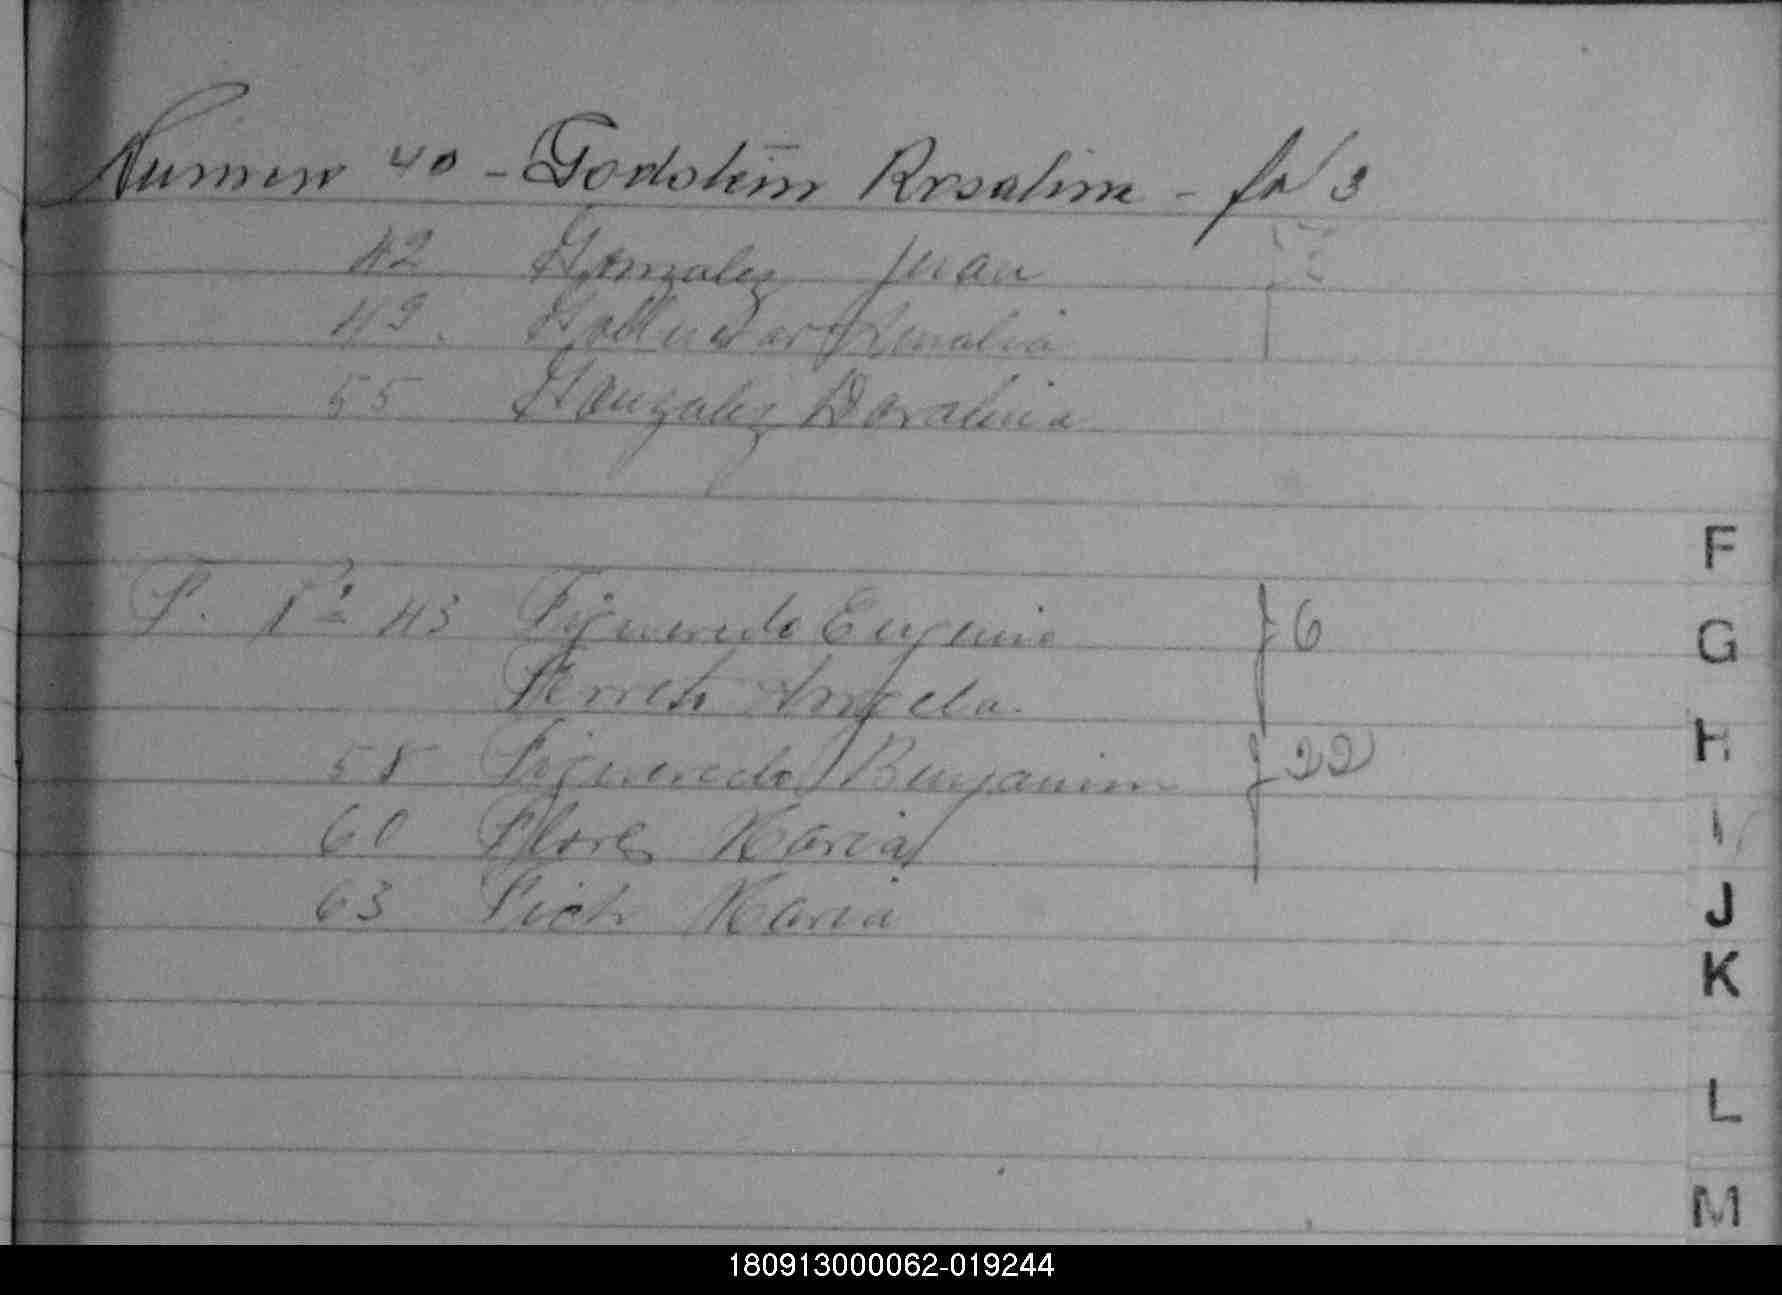 Numero 40 - Godstein Rosalina - fo 3
42 Gonzalez Juan
49. Amalia
55 Gonzalez Doralicia
F. 1ª 43 Figueredo Eugenio } 6
Angela.
58 Figueredo Benjamin } 22
60 Flores Maria
63 Maria
F
G
H
I
J
K
L
M
180913000062-019244